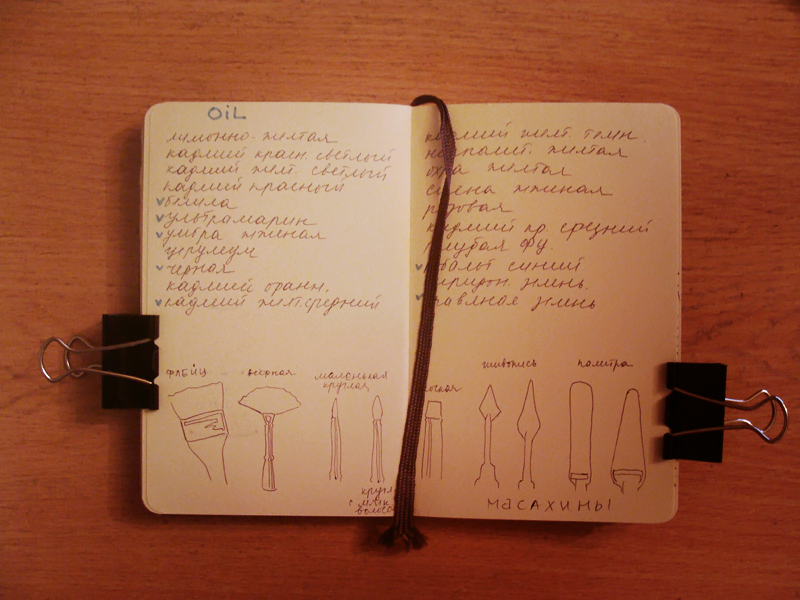 OiL
лимонно-желтая
кадмий красн. светлый
кадмий жел. светлый
кадмий красный
белила
ультрамарин
умбра жженая
церулеум
черная
кадмий оранж.
кадмий жел. средний
жел. темн.
желтая
охра желтая
сиена жженая
розовая
кадмий кр. средний
голубая ФЦ.
кобальт синий
зелень.
травяная зелень
флейц
веерная
маленькая
круглая
кругл
с
волоса
живопись
палитра
масахины